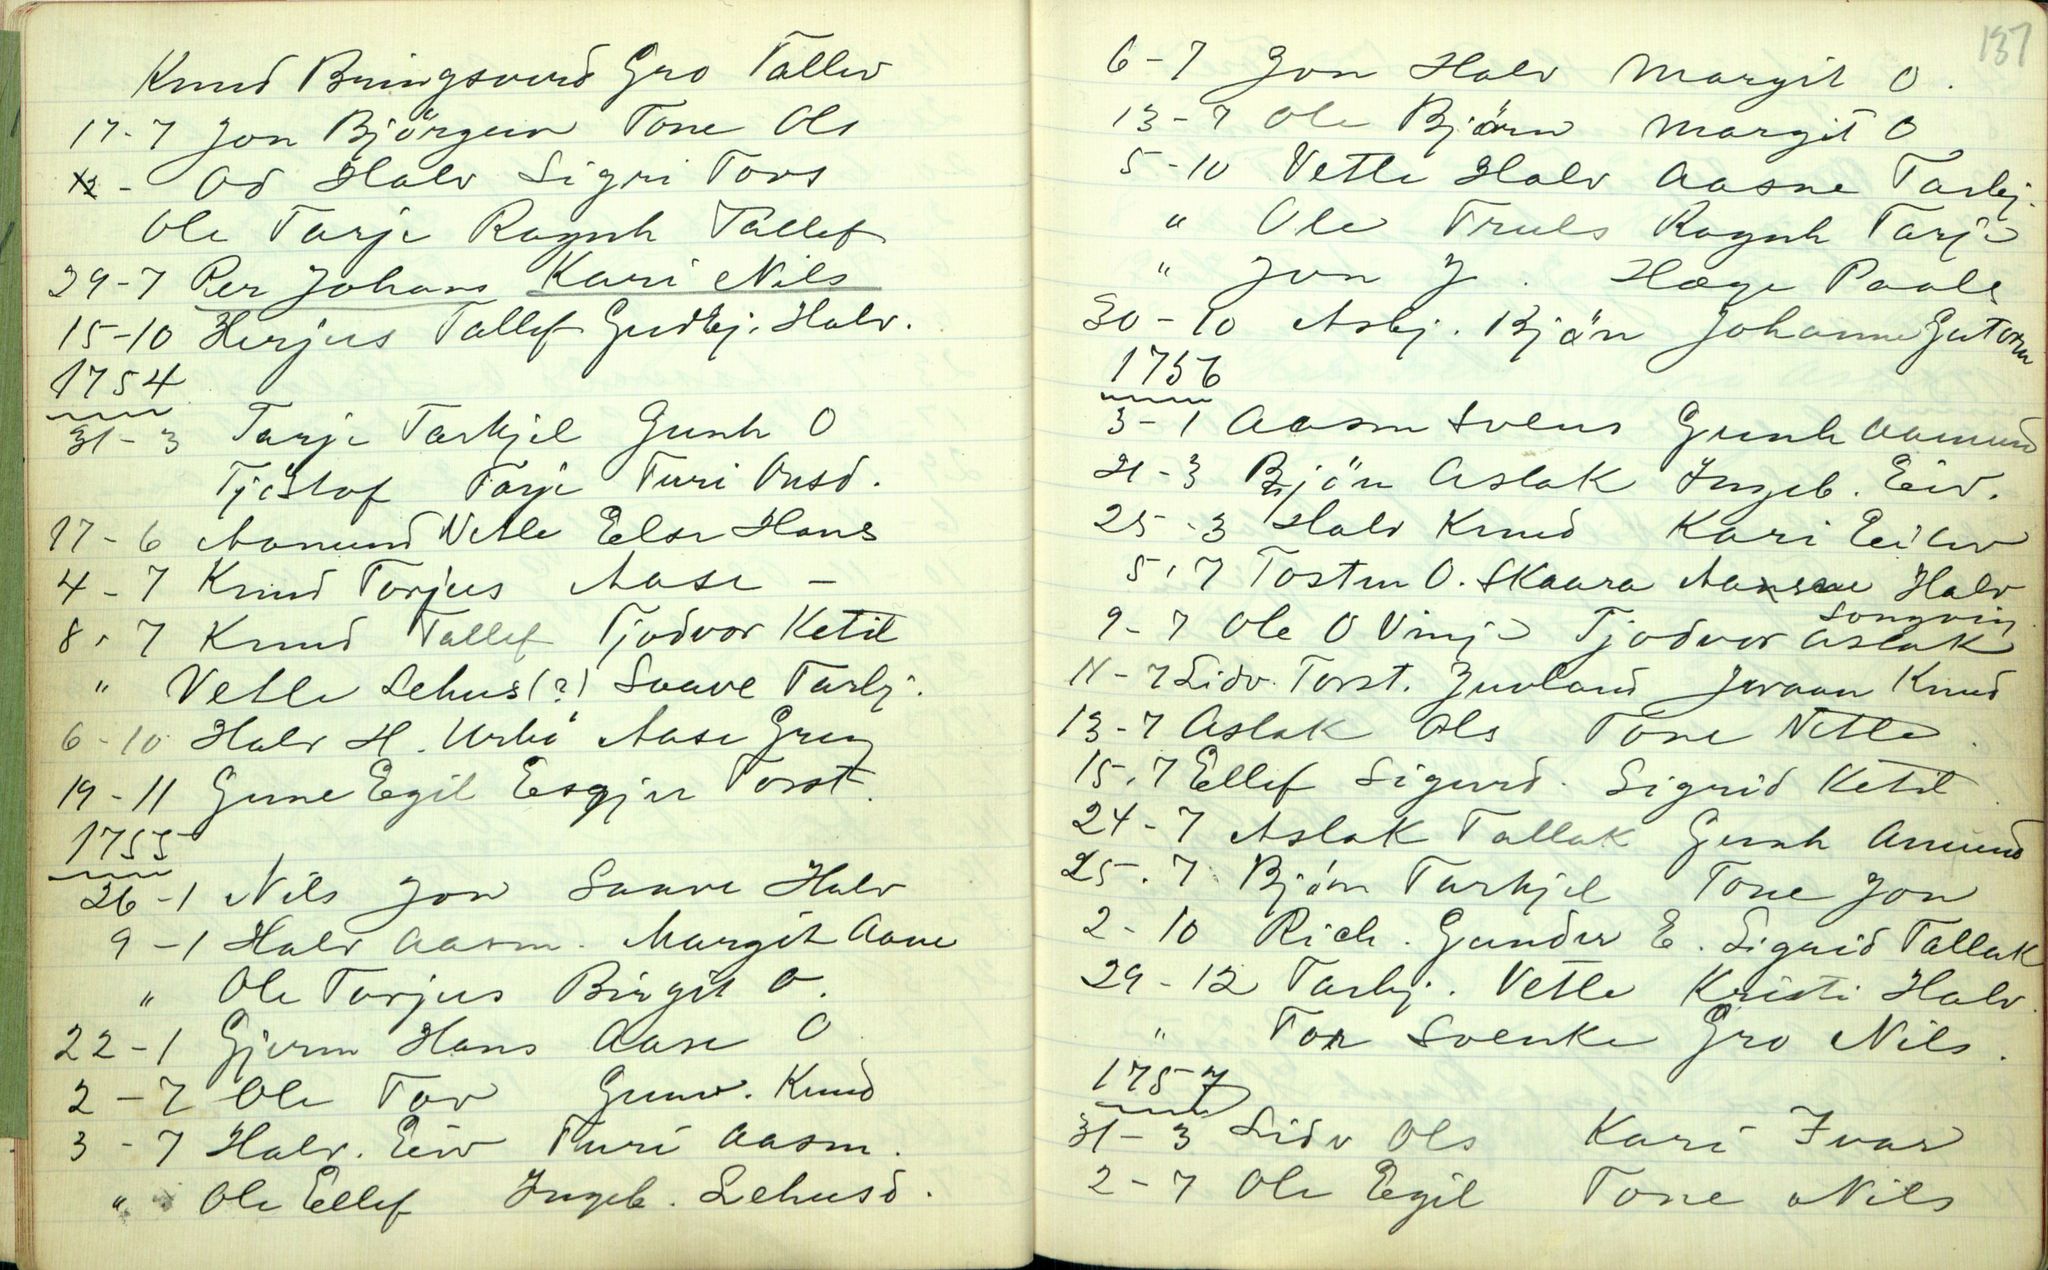 Knud Bringsverd Gro Tallev
17-7 Jon Björguv Tone Ols
Od Halv Sigri Tovs
Ole Tarje Ragnh Tallef
29-7 Per Johans Kari Nils
15-10 Herjus Tallef Gudbj. Halv.
1754
31-3 Tarje Tarkjel Gunh O
Tjöstof Tarje Turi Onsd.
17-6 Aamund Vetle Else Hans
4-7 Knud Torjus Aase -
8-7 Knud Tallef Tjodvor Ketil
" Vetle Lehus(?) Saave Tarbj.
6-10 Halv H. Urbö Aase Greg
19-11 Gune Egil Esgjer Torst.
1755
26-1 Nils Jon Saave Halv
9-1 Halv Aasm. Margit Aave
" Ole Torjus Birgit O.
22-1 Gjerm Hans Aase O
2-7 Ole Tov Gunv. Knud
3-7 Halv. Eiv Turi Aasm.
" Ole Ellef Ingeb. Lehusd.
137
6-7 Jon Halv Margit O.
13-7 Ole Björn Margit O
5-10 Vetle Halv Aasne Tarbj.
" Ole Truls Ragnh Tarje
" Jon J. Hæge Paals
30-10 Asbj. Bjön Johanne Gutorm
1756
3-1 Aasm Svens Gunh Aamund
21-3 Bjön Aslak Ingeb. Eiv.
25-3 Halv Knud Kari Eilev
5-7 Tosten O. Skaara Aasne Halv
Songvin
9-7 Ole O Vinje Tjodvor Aslak
11-7 Lidv. Torst. Juvland Joraan Knud
13-7 Aslak Ols Tone Vetle.
15-7 Ellef Sigurd. Sigrid Ketil.
24-7 Aslak Tallak Gunh Amund
25-7 Björn Tarkjel Tone Jon
2-10 Rich. Gunder E. Sigrid Tallak
29-12 Tarbj. Vetle Kristi Halv.
" Tor Svenke Gro Nils.
1757
31-3 Lidv Ols Kari Ivar
2-7 Ole Egil Tone Nils